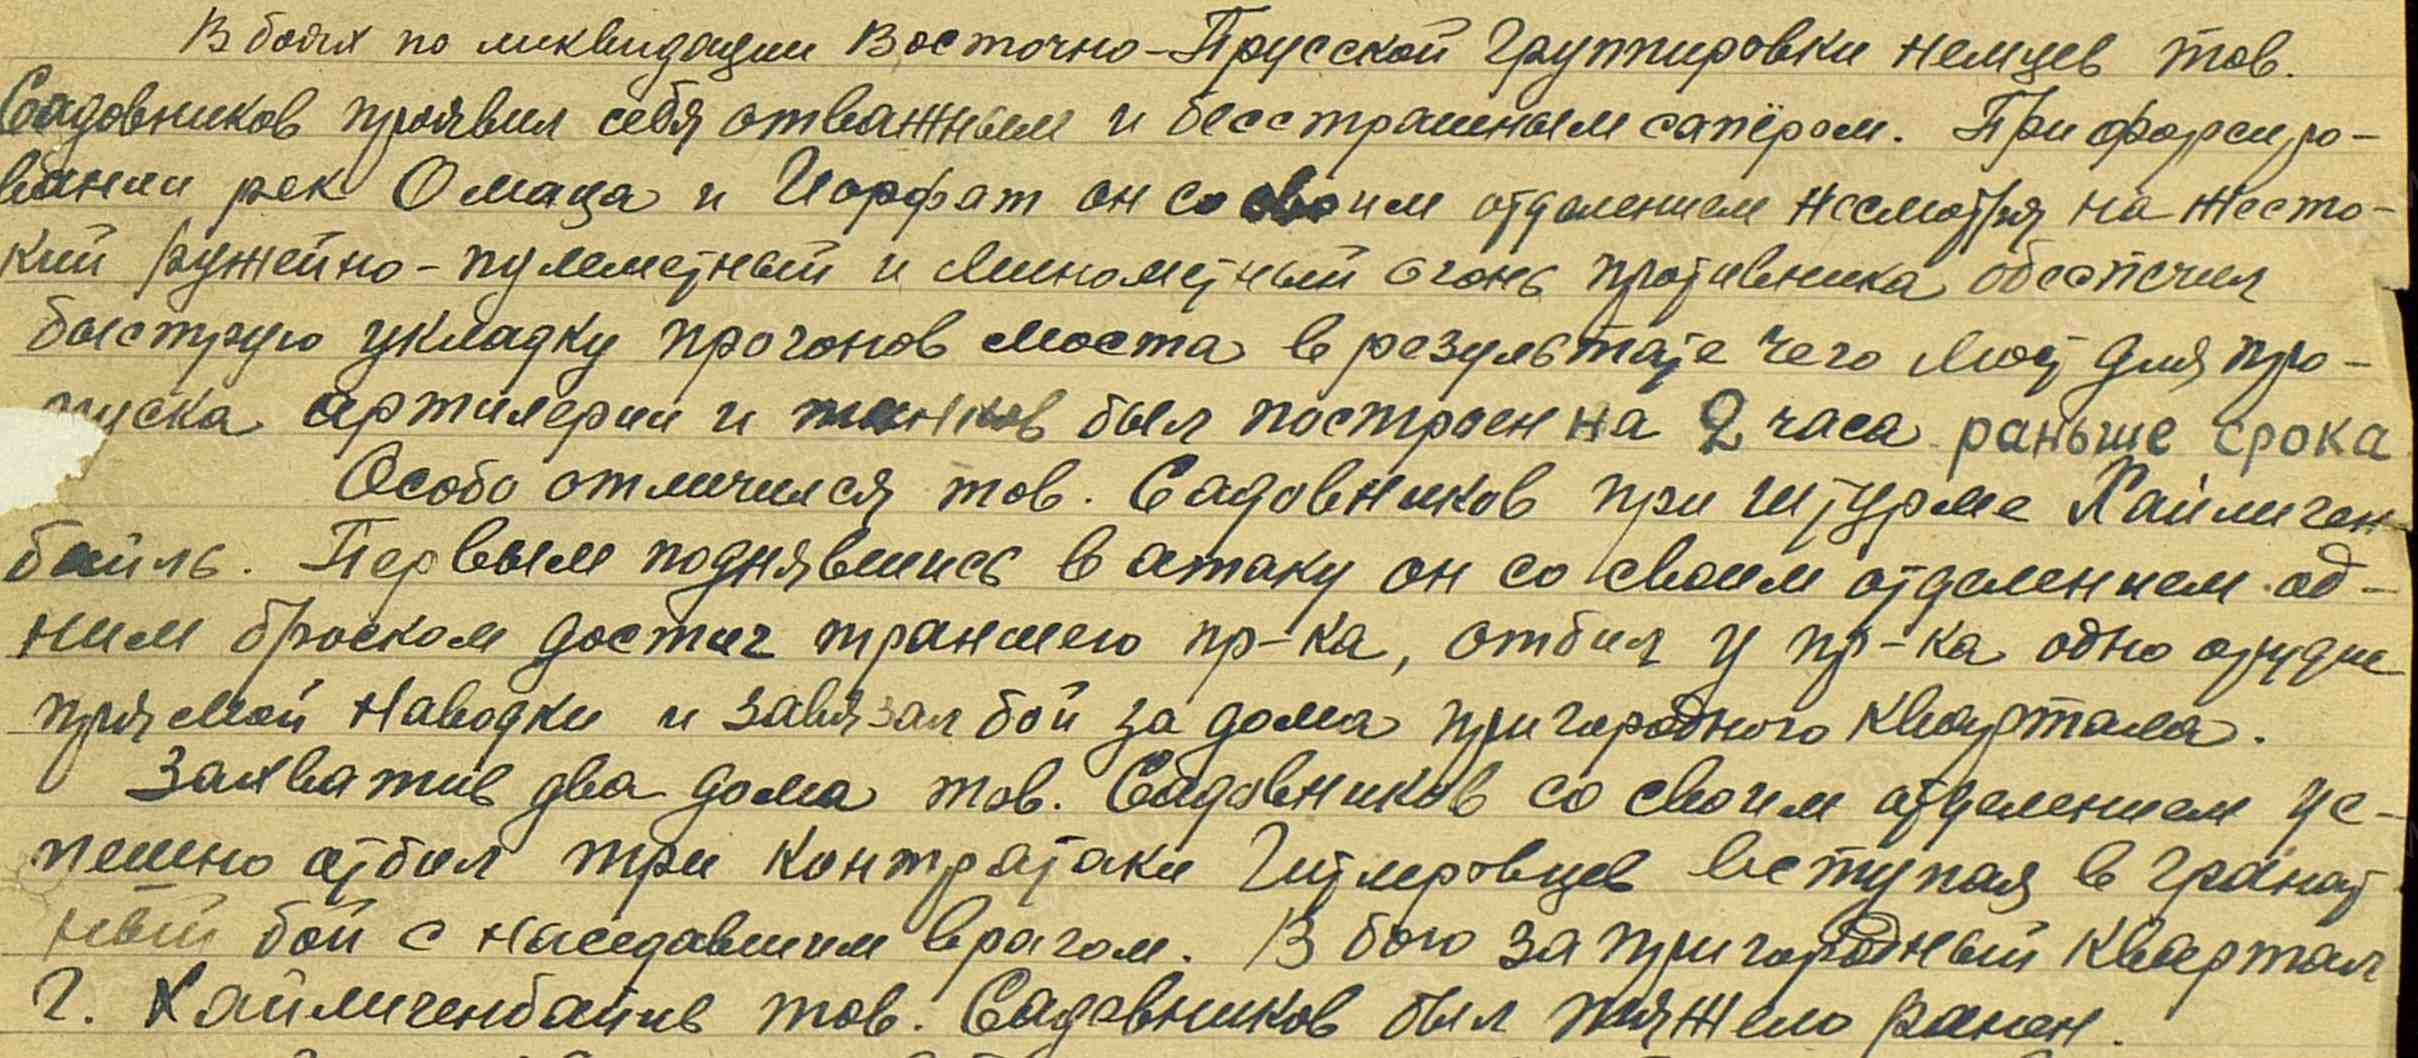 В боях по ликвидации Восточно-Прусской группировки немцев тов.
Садовников проявил себя отважным и бесстрашным сапёром. При форсиро-
вании рек Омаза и Иорфат он со своим отделением несмотря на жесто-
кий ружейно-пулеметный и минометный огонь противника обеспечил
быструю укладку прогонов моста в результате чего мост для про-
пуска артилерии и танков был построен на 2 часа раньше срока
Особо отличился тов. Садовников при штурме Хайлиген
байль. Первым поднявшись в атаку он со своим отделением од-
ним броском достиг траншею пр-ка, отбил у пр-ка одно орудие
прямой наводки и завязал бой за дома пригородного квартала.
Захватив два дома тов. Садовников со своим отделением ус-
пешно отбил три контратаки Гитлеровцев вступая в гранат
ный бой с наседавшим врагом. В бою за пригородный квартал
г. Хайлигенбайль тов. Садовников был тяжело ранен.